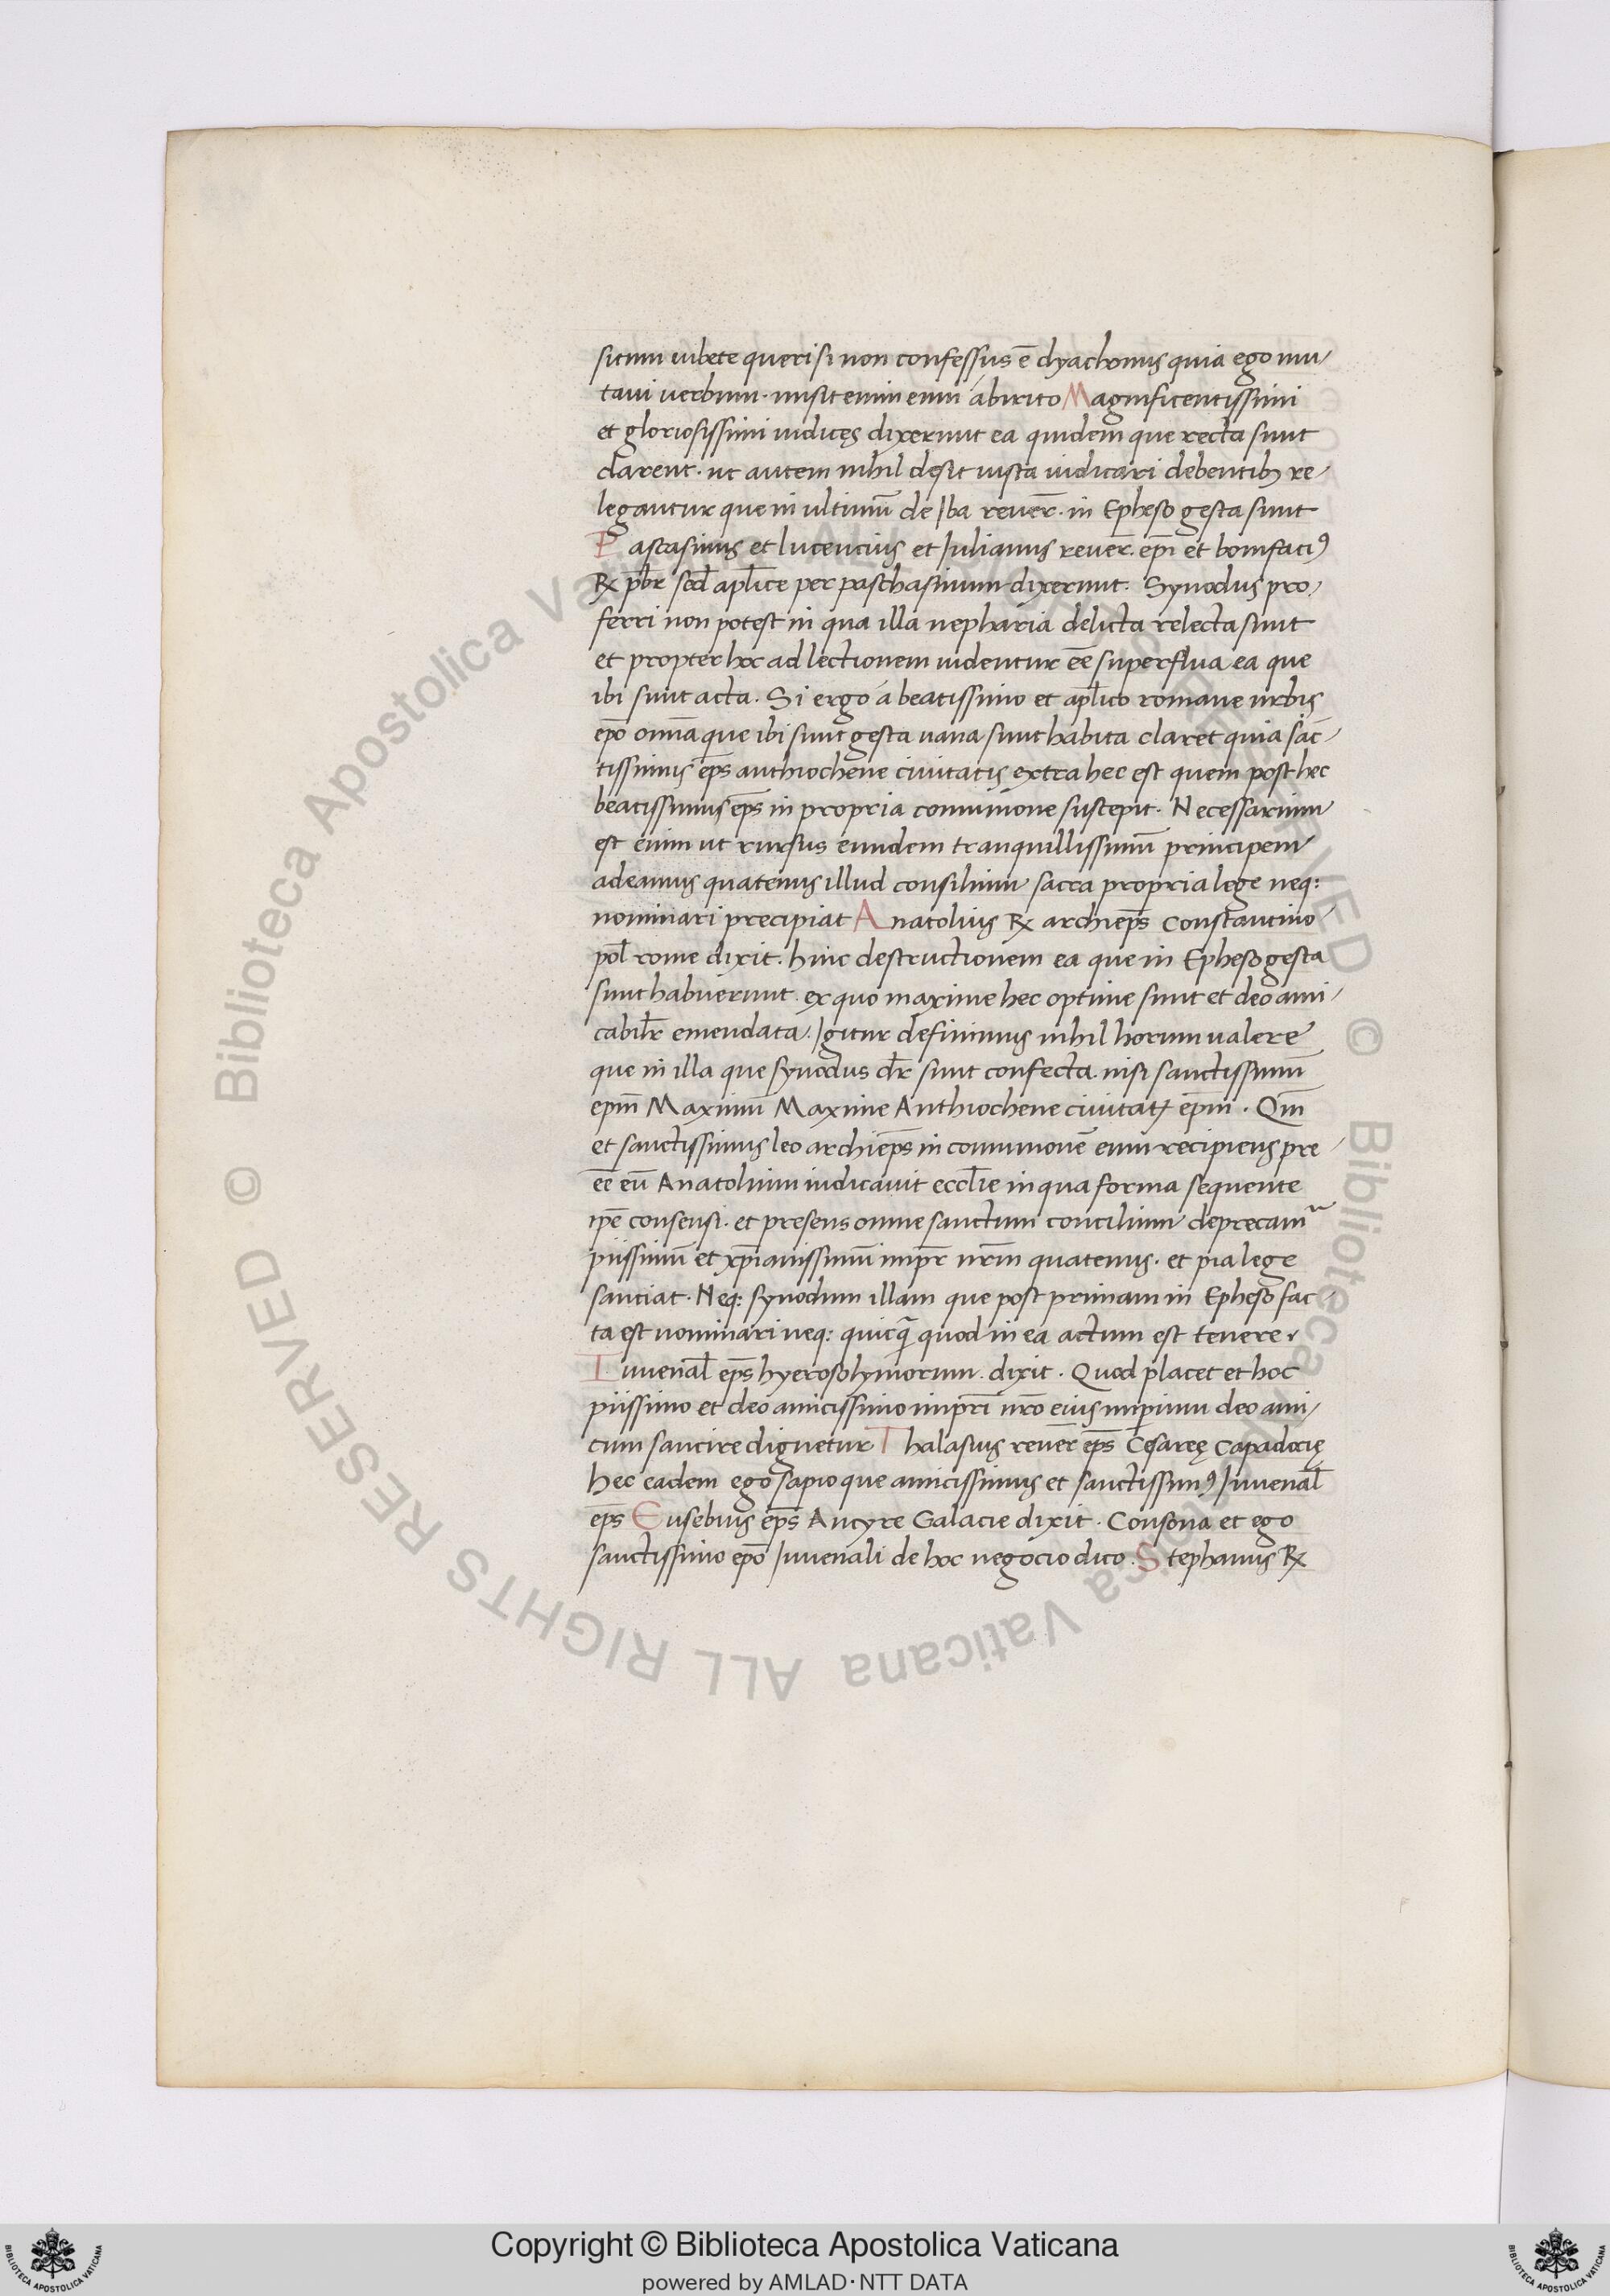 situm iubete queri si non confessus ē dyachonus quia ego mu-
tavi verbum. misit enim eum ábirito Magnificentissimi
et gloriosissimi iudices dixerunt ea quidem que recta sunt
clarent. ut autem nihil desit iusta iudicari debentibȝ re-
legantur que in ultimū de Iba reuer̄. in Epheso gesta sunt
Pascasinus et lucencius et Iulianus reuer̄. ep̄i et bonifaciꝰ
℞ pb̄r sed̄ apl̄ice per paschasinum dixerunt. Synodus pro-
ferri non potest in qua illa nepharia delicta relecta sunt
et propter hoc ad lectionem uidentur eē superflua ea que
ibi sunt acta. Si ergo á beatissimo et apl̄ico romane urbis
ep̄o omīa que ibi sunt gesta uana sunt habita claret quia sāc-
tissimus ep̄s anthiochene ciuitatis extra hec est quem post hec
beatissimus ep̄s in propria comunione suscepit. Necessarium
est enim ut rursus eundem tranquillissimū principem
adeamus quatenus illud consilium sacra propria lege neq:
nominari precipiat Anatolius ℞ archiep̄s Constantino-
pol̄ rome dixit. hinc destructionem ea que in Epheso gesta
sunt habuerunt. ex quo maxime hec optime sunt et deo ami-
cabilr̄ emendata. Igitur definimus nihil horum valere
que in illa que synodus dr̄ sunt confecta. nisi sanctissimū
epm̄ Maximū Maxime Anthiochene ciuitatꝭ ep̄m. Qm̄
et sanctissimus leo archiep̄s in comunionē eum recipiens pre
eē eū Anatolium iudicauit eccl̄ie in qua forma sequente
ip̄e consensi. et presens omne sanctum concilium deprecamur
piissimū et xp̄ianissimū impr̄ nr̄m quatenus. et pia lege
sanciat. Neq: synodum illam que post primam in Epheso fac-
ta est nominari neq: quicq̄ quod in ea actum est tenere.
Iuvenal̄ ep̄s hyerosolymorum. dixit. Quod placet et hoc
piissimo et deo amicissimo impr̄i nr̄o eius imperium deo ami-
cum sancire dignetur Thalasius reuer̄ ep̄s Cesareę Capadocię
hec eadem ego sapio que amicissimus et sanctissimꝰ Iuvenal̄
ep̄s Eusebius ep̄s Ancyre Galacie dixit. Consona et ego
sanctissimo ep̄o Iuvenali de hoc negocio dico. Stephanus ℞
© Biblioteca Apostolica Vaticana ALL RIGHTS RESERVED © Biblioteca Apostolica Vaticana ALL RIGHTS RESERVED
Copyright © Biblioteca Apostolica Vaticana
powered by AMLAD·NTT DATA
BIBLIOTECA APOSTOLICA VATICANA
BIBLIOTECA APOSTOLICA VATICANA